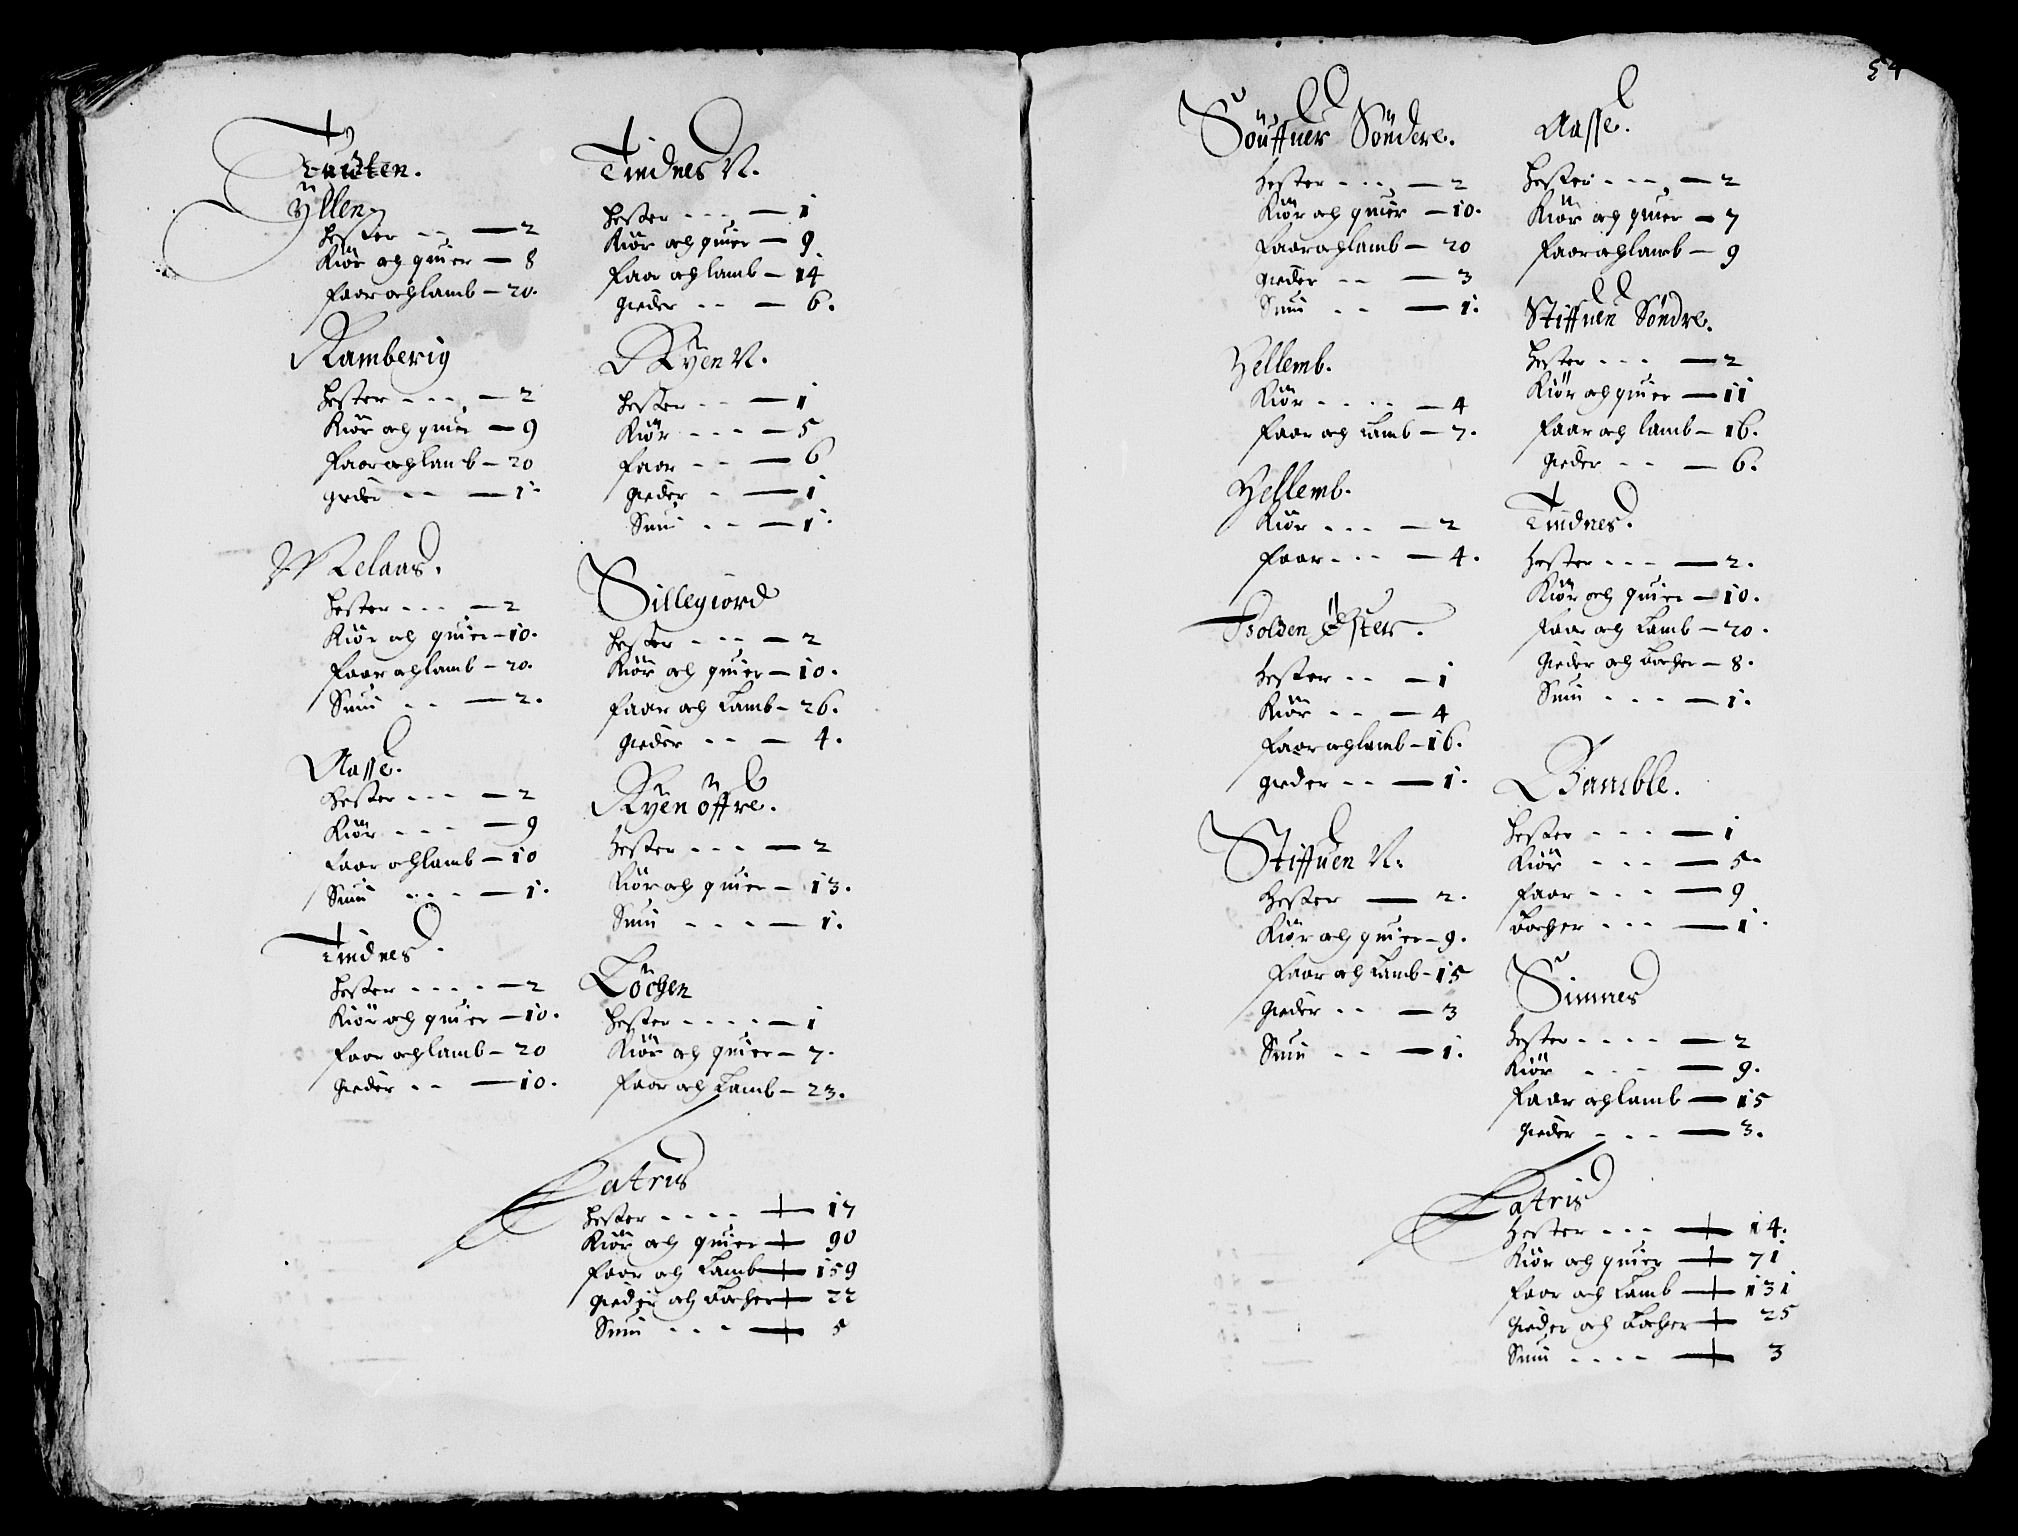 Tuiten.
Ÿllen.
Hester - - — 2
Kiör och quier — 8
Faar och lamb — 20.
Ramberig
Hester - - - — 2
Kiör och quier — 9
Faar och lamb — 20
gieder - - — 1.
Melaas.
Hester - - - — 2
Kiör och quier — 10.
Faar och lamb — 20.
Suin - - — 2.
Aasse.
Hester - - - — 2
Kiör - - - — 9
Faar och lamb — 10
Suin - - - — 1.
Tindnes.
Hester - - - - — 2
Kiör och quier — 10.
Faar och lamb — 20
Gieder - - — 10.
Tindnes N.
Hester - - - — 1
Kiör och quier — 9.
Faar och lamb — 14
gieder - - — 6.
Ryen N.
Hester - - — 1
Kiör - - - — 5
Faar - - — 6
gieder - — 1
Suin - - — 1.
Sillegiord
Hester - - - — 2
Kiör och quier — 10.
Faar och Lamb — 26.
gieder - - — 4.
Ryen öffre.
Hester - - - — 2
Kiör och quier — 13.
Suin - - - - — 1.
Töchen
Hester - - - - — 1
Kiör och quier — 7.
Faar och Lamb — 23.
Latris
Hester - - - - — 17
Kiör och quier — 90
Faar och Lamb — 159
gieder och Bocher — 22
Suin - - - — 5
54
Söuffuer Söndere.
Hester - - - — 2
Kiör och quier — 10.
Faar och lamb — 20
gieder - - — 3
Suin - - — 1.
Hellemb.
Kiör - - - - — 4
Faar och Lamb — 7.
Hellemb.
Kiör - - - — 2
Faar - - - — 4.
Holden Öster.
Hester - - — 1
Kiör - - — 4
Faar och lamb — 16.
gieder - - — 1.
Stiffuen N.
Hester — 2.
Kiör och quier — 9.
Faar och Lamb — 15
Gieder - - — 3
Suin - - — 1.
Aasse.
Hester - - - — 2
Kiör och quier — 7
Faar och lamb — 9
Stiffuen Söndre.
Hester - - - — 2
Kiör och quier — 11
Faar och lamb — 16.
gieder - - — 6.
Tindnes.
Hester - - - — 2.
Kiör och quier — 10.
Faar och Lamb — 20.
Gieder och Bocher — 8.
Suin - - - — 1.
Bamble.
Hester - - - — 1
Kiör - - - — 5.
Faar - - - — 9
Bocher - - - — 1.
Sinnes
Hester - - - - — 2
Kiör - - - — 9.
Faar och lamb — 15
gieder - - - — 3.
Latris
Hester - - - — 14.
Kiör och quier — 71
Faar och Lamb — 131
gieder och Bocher — 25
Suin - - - - — 3